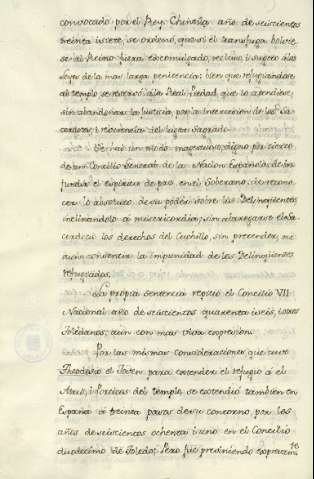 convocado por el Rey Chintila año de seiscientos
treinta i siete, se ordenó, que si el transfuga bolvie-
se al Reino fuera excomulgado, recluso, i sugeto a las
leyes de la mas larga penitencia: bien que refugiandose
al templo se reservó à la Real piedad, que lo atendiese,
sin abandonar la Justicia, por la intercesion de los Sa-
cerdotes, i reverencia del lugar Sagrado.
Este fué un modo magestuoso, digno por cierto
de un Concilio General de la Nacion Española, de in-
fundir el espiritu de paz en el Soberano; de recono-
cer lo absoluto de su poder sobre los Delinquentes
inclinandolo à misericordia; sin relaxarse el Sa-
cerdocio los derechos del Cuchillo, sin pretender, ni
aun consentir la impunidad de los Delinquentes
refugiados.
La propia sentencia repitió el Concilio VII
Nacional año de seiscientos quarenta i seis,
Toledano, aun con mas viva expresion.
Por las mismas consideraciones que tuvo
Theodosio el Joben para extender el refugio á el
Atrio, i Porticos del templo, se extendió tambien en
España á treinta pasos de su contorno por los
años de seiscientos ochenta i uno en el Concilio
duodecimo de Toledo: Pero fué previniendo expresamen
te